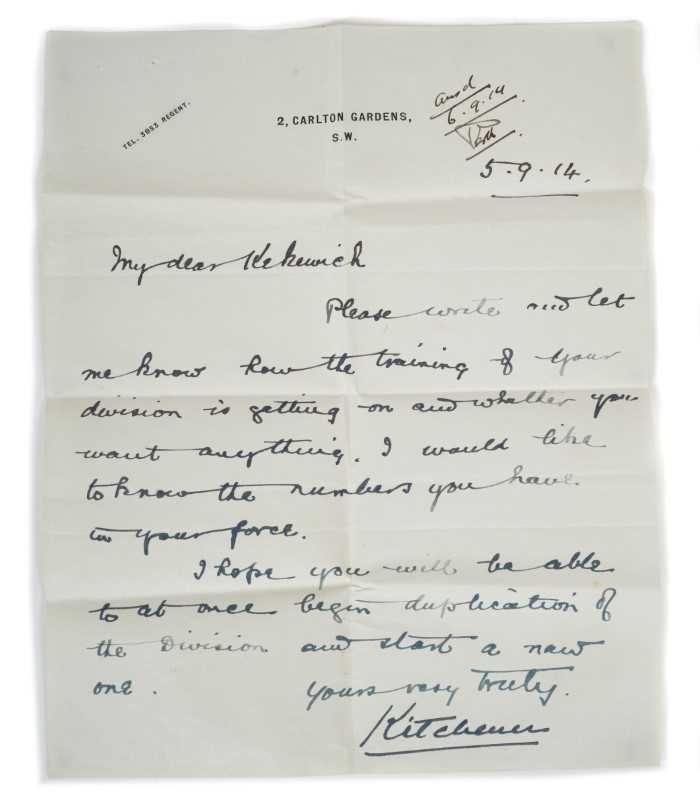 TEL. 3953 REGENT.
2, CARLTON GARDENS,
S.W.
ansd
6.9.14
5.9.14.
My dear Kekewich
Please write and let
me know how the training of your
division is getting on and whether you
want anything. I would like
to know the numbers you have
in your force.
I hope you will be able
to at once begin duplication of
the Division and start a new
one. Yours very truly.
Kitchener